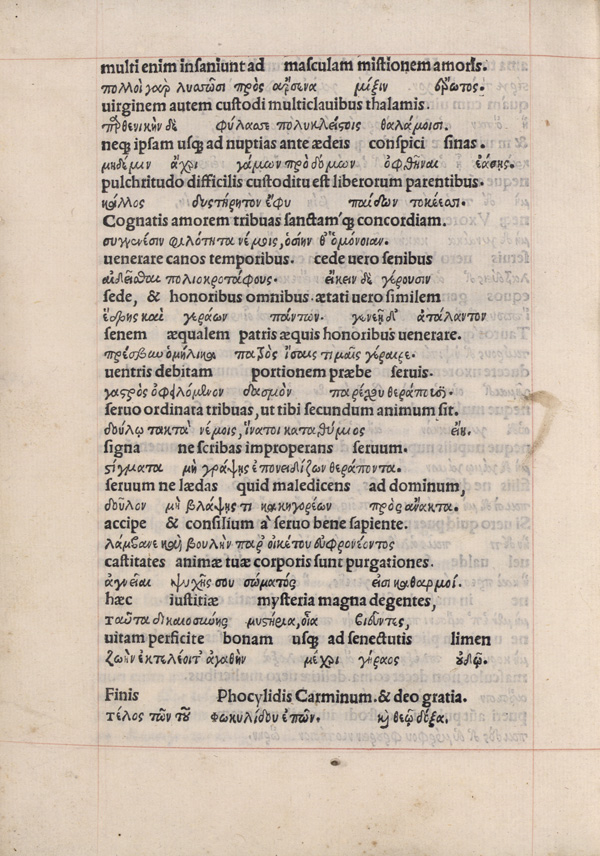 multi enim insaniunt ad masculam mistionem amoris.
πολλοὶ γαρ λυσσῶσι πρὸς ἄρσενα μίξιν ἔρωτος.
uirginem autem custodi multiclauibus thalamis.
παρθενικὴν δὲ φύλασσε πολυκλείστοις θαλάμοισι.
neq; ipsam usq; ad nuptias ante ædeis conspici sinas.
μηδέ μιν ἄχρι γάμων πρὸ δόμων ὀφθῆναι ἐάσῃς.
pulchritudo difficilis custoditu est liberorum parentibus.
κάλλος δυστήρητον ἔφυ παίδων τοκέεσσι.
Cognatis amorem tribuas sanctam'q; concordiam.
συγγενέσιν φιλότητα νέμοις, ὁσίην θ' ὁμόνοιαν.
uenerare canos temporibus. cede uero senibus
αἰδεῖσθαι πολιοκροτάφους. εἴκειν δὲ γέρουσιν
sede, & honoribus omnibus. ætati uero similem
ἕδρης καὶ γεράων πάντων. γενεῇ δ' ἀτάλαντον
senem æqualem patris æquis honoribus uenerare.
πρέσβυν ὁμήλικα πατρὸς ἴσαις τιμαῖς γέραιρε.
uentris debitam portionem præbe seruis.
γαστρὸς ὀφειλόμενον δασμὸν παρέχου θεράπουσι.
seruo ordinata tribuas, ut tibi secundum animum sit.
δούλῳ τακτὰ νέμοις, ἵνα τοι καταθύμιος εἴη.
signa ne scribas improperans seruum.
στίγματα μὴ γράψῃς ἐπονειδίζων θεράποντα.
seruum ne lædas quid maledicens ad dominum,
δοῦλον μὴ βλάψῃς τι κακηγορέων πρὸς ἄνακτα.
accipe & consilium a' seruo bene sapiente.
λάμβανε καὶ βουλὴν παρ' οἰκέτου εὐφρονέοντος
castitates animæ tuæ corporis sunt purgationes.
ἁγνεῖαι ψυχῆς σου σώματός εἰσι καθαρμοί.
hæc iustitiæ mysteria magna degentes,
ταῦτα δικαιοσύνης μυστήρια, οἷα βιοῦντες,
uitam perficite bonam usq; ad senectutis limen
ζωὴν ἐκτελέοιτ' ἀγαθὴν μέχρι γήραος οὐδοῦ.
Finis Phocylidis Carminum. & deo gratia.
τέλος τῶν τοῦ φωκυλίδου ἐπῶν. καὶ θεῷ δόξα.